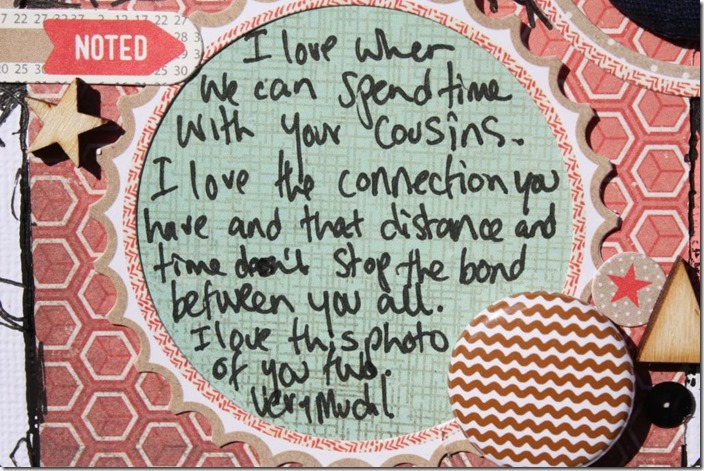 7 22 27
22 27
25 30
30
NOTED
I love when
We can spend time
With your Cousins.
I love the connection you
have and that distance and
time don't stop the bond
between you all.
I love this photo
of you two.
Very Much!